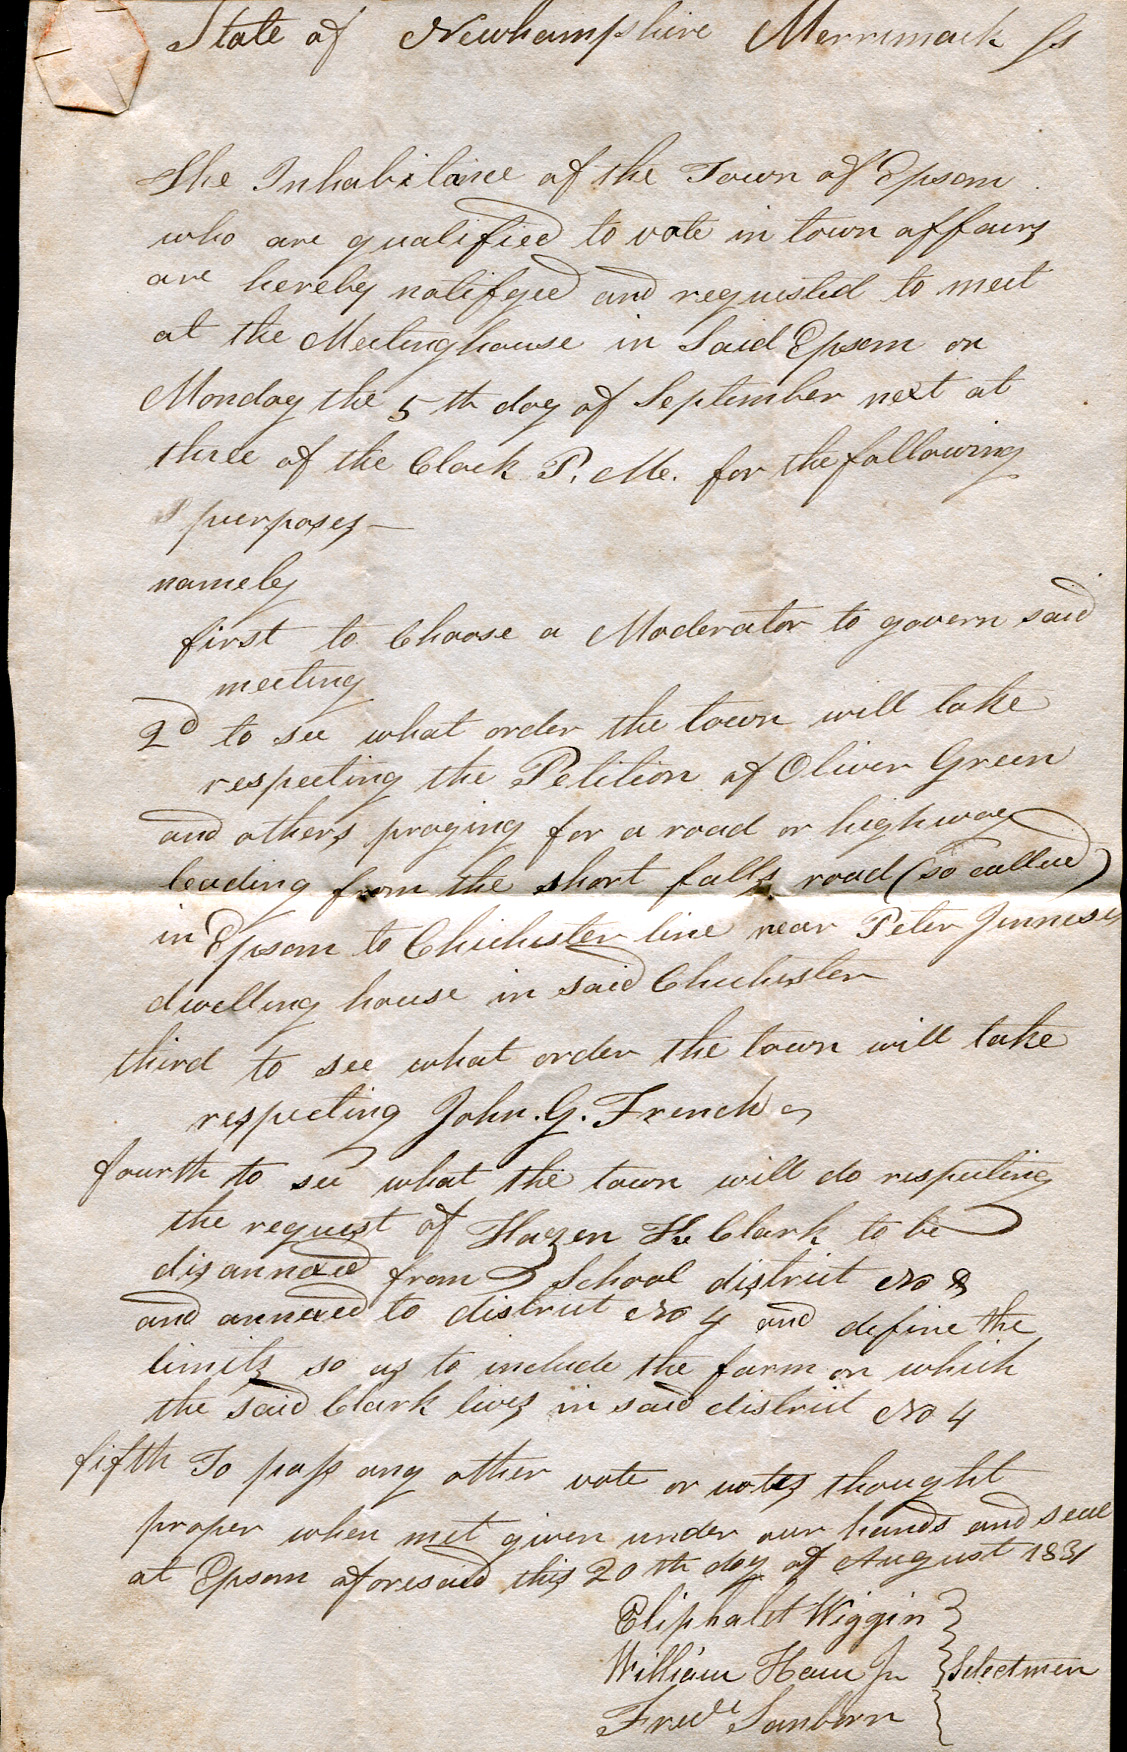 State of Newhampshire Merrimack ss
The Inhabitance of the Town of Epsom
who are qualified to vote in town affairs
are hereby notifyed and requested to meet
at the Meetinghouse in Said Epsom on
Monday the 5th day of September next at
three of the Clock P. M. for the following
purposes —
namely
first to Choose a Moderator to govern said
meeting
2d to see what order the town will take
respecting the Petition of Oliver Green
and others praying for a road or highway
leading from the short falls road (so called)
in Epsom to Chichester line near Peter
dwelling house in said Chichester
third to see what order the town will take
respecting John. G. French
fourth to see what the town will do respecting
the request of Hazen Clark to be
disannexed from School district No
and annexed to district No 4 and define the
limits so as to include the farm on which
the Said Clark lives in said district No 4
fifth To pass any other vote or votes thought
proper when met given under our hands and seal
at Epsom aforesaid this 20th day of August 1831
Eliphalet Wiggin
William Ham Jr Selectmen
Fredk Sanborn